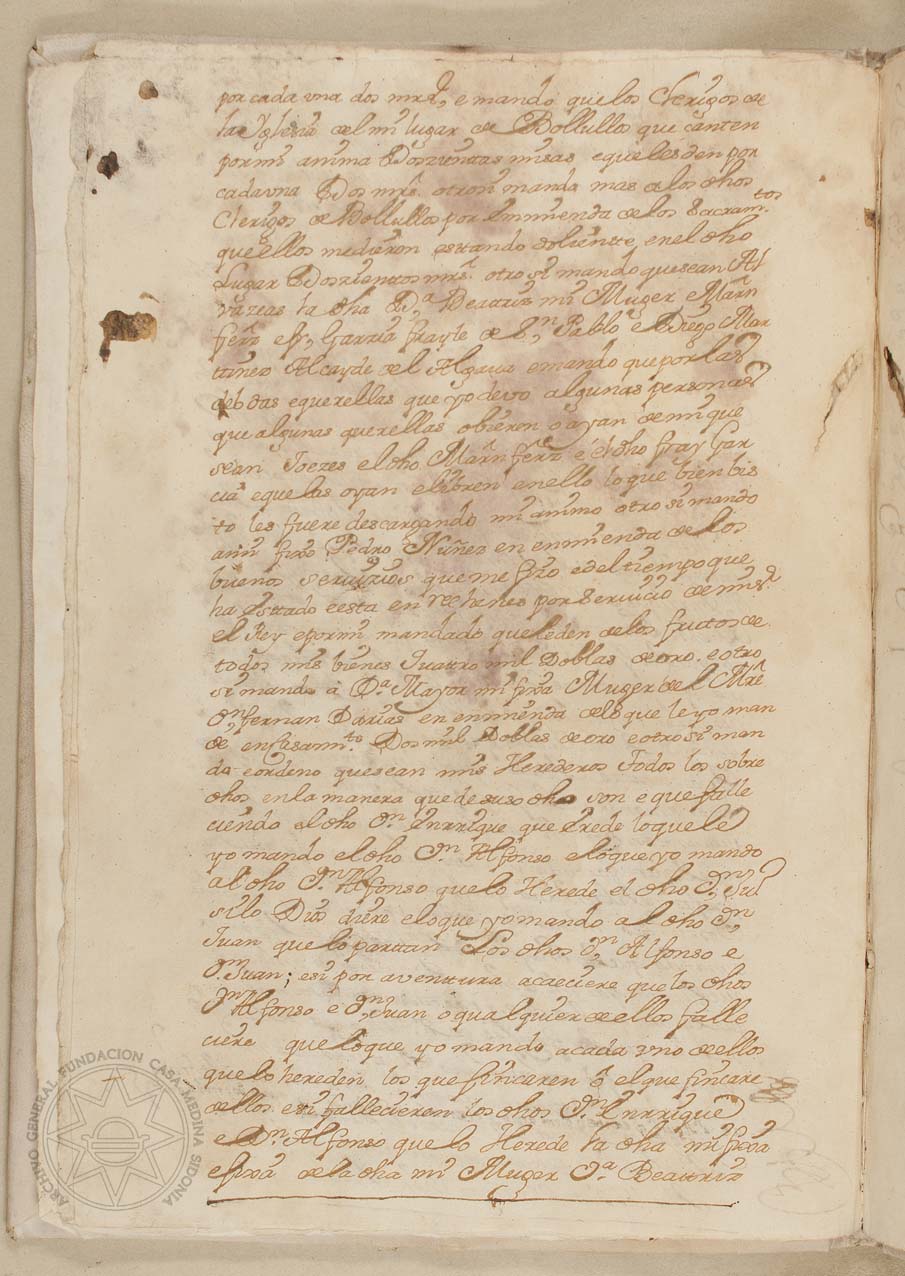 por cada vna dos mrs, e mando que los Clerigos de
la Yglesia del mi lugar de Bollullos que canten
por mi anima Dozientas misas e que les den por
cada vna Dos mrs. otrosi mando mas a los dhos
Clerigos de Bollullos por Emmienda de los Sacram.tos
que ellos me dieron estando doliente, en el dho
Lugar Dozientos mrs. otro si mando que sean Al
vazeas la dha D.a Beatriz mi Muger e Mărn
ferrz e fr. Garzia frayle de S.n Pablo e Diego Mar
tinez Alcayde del Algaua e mando que por las
debdas e querellas que yo devo algunas personas
que algunas querellas obieren o ayan de mi que
sean Joezes el dho Mărn ferrz é el dho fray Gar
cia e que las oyan e libren en ello lo que bien bis
to les fuere descargando mi animo otro si mando
a mi fixo Pedro Nuñez en enmienda de los
buenos seruizios que me fizo e del tiempo que
ha estado e esta en rechenes por Seruicio de mi s.r
el Rey e por mi mandado que le den de los fructos de
todos mis bienes Quattro mil Doblas de oro. e otro
si mando a D.a Mayor mi fixa Muger del Mrē
D.n fernan Darias en enmienda de lo que le yo man
de en Casam.to Dos mil Doblas de oro e otro si man
do e ordeno que sean mis Herederos Todos los sobre
dhos en la manera que de suso dho son e que falle
ciendo el dho D.n Enrrique que erede lo que le
yo mando el dho D.n Alfonso e lo que yo mando
al dho D.n Alfonso que lo Herede el dho D.n Ju.o
si lo Dios diere e lo que yo mando al dho D.n
Juan que lo partan Los dhos D.n Alfonso e
D.n Juan; e si por aventura acaeciere que los dhos
D.n Alfonso e D.n Juan o qualquier de ellos falle
ciere que lo que yo mando a cada uno de ellos
que lo hereden los que fincaren o el que fincare
de ellos e si fallecieren los dhos D.n Enrrique
e D.n Alfonso que lo Herede la dha mi fixa
e fixa de la dha mi Muger D.a Beatriz
ARCHIVO GENERAL FUNDACION CASA MEDINA SIDONIA